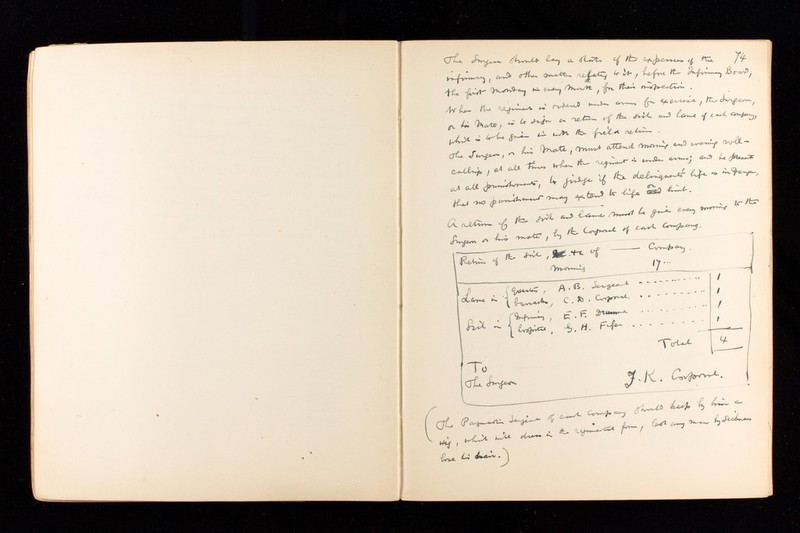 74
The Surgeon should lay a State of the expenses of the
infirmary, and other matters relating to it, before the Infirmary Board,
the first Monday in every Month, for their inspection.
When the regiment is ordered under arms for exercise, the Surgeon,
or his Mate, is to sign a return of the sick and lame of each company,
which is to be given in with the field return.
The Surgeon, or his Mate, must attend morning and evening roll-
callings, at all times when the regiment is under arms; and be present
at all punishments, to judge if the delinquents life is in danger,
that no punishment may extend to life or limb.
A return of the sick and lame must be given every morning to the
Surgeon or his mate, by the Corporal of each Company.
Return of the sick, &c of —— Company.
Morning 17...
Lame in { Quarters, A.B. Sergeant .......... 1
barracks, C.D. Corporal .......... 1
Sick in { Infirmary, E.F. Drummer .......... 1
hospital, G.H. Fifer .......... 1
Total 4
To
The Surgeon
J.K. Corporal.
(The Paymaster Serjeant of each Company should keep by him a
wig, which will dress in the regimental form, lest any man by sickness
lose his hair.)